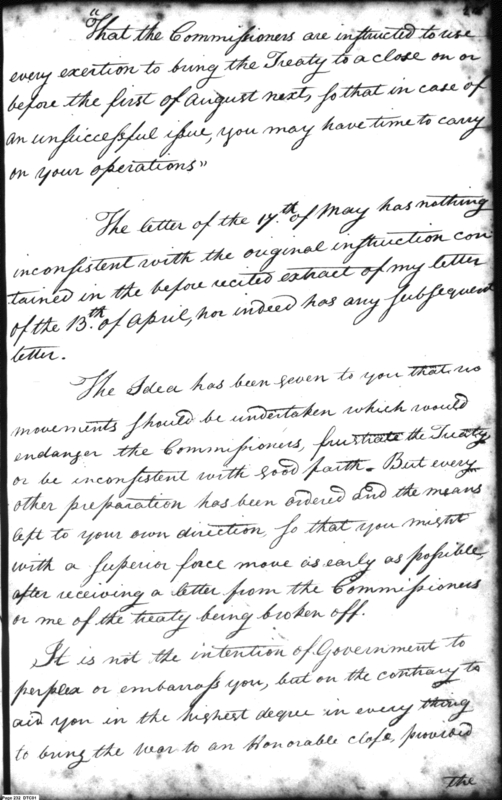 "That the Commissioners are instructed to use
every exertion to bring the Treaty to a close on or
before the first of August next, so that in case of
an unsuccessful issue, you may have time to carry
on your operations"
The letter of the 17th of May has nothing
inconsistent with the original instruction con
tained in the before recited extract of my letter
of the 13th of April, nor indeed has any subsequent
letter.
The Idea has been given to you that no
movements should be undertaken which would
endanger the Commissioners, frustrate the Treaty
or be inconsistent with good faith. But every
other preparation has been ordered and the means
left to your own direction, so that you might
with a superior force move as early as possible
after receiving a letter from the Commissioners
or me of the treaty being broken off.
It is not the intention of Government to
perplex or embarrass you, but on the contrary to
aid you in the highest degree in every thing
to bring the war to an Honorable close, provided
the
Page 232 DTC01